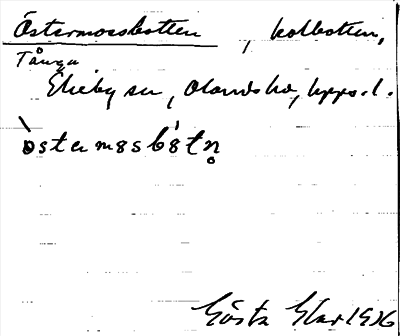 Östermossbotten, kolbotten,
Tånga
Ekeby sn, Olands hd, Upps. l.
òstermåsbót̥n̥
Gösta 1916